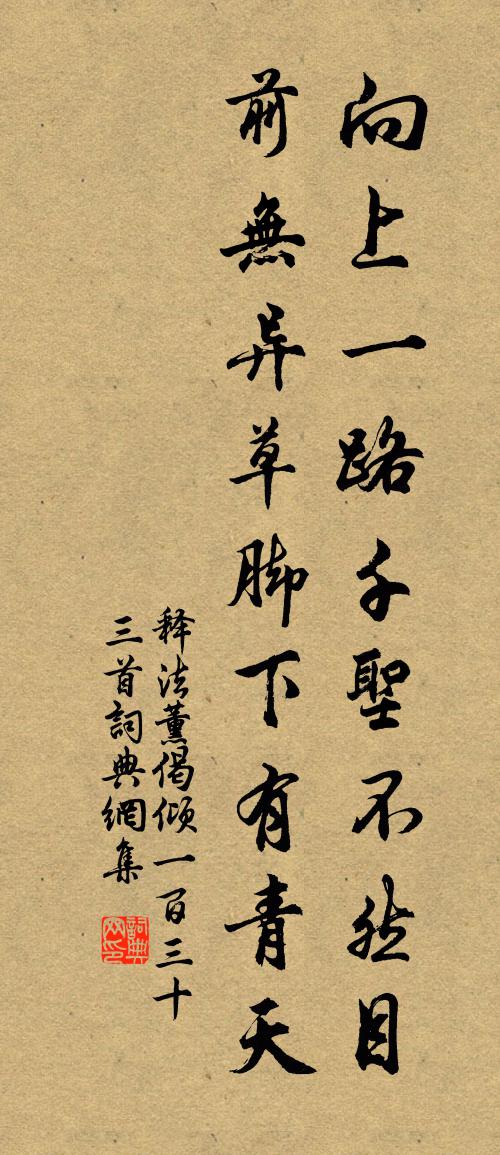 向上一路千聖不然目
前無异草脚下有青天
释法薰偈倾一百三十
三首詞典網集
詞典网印